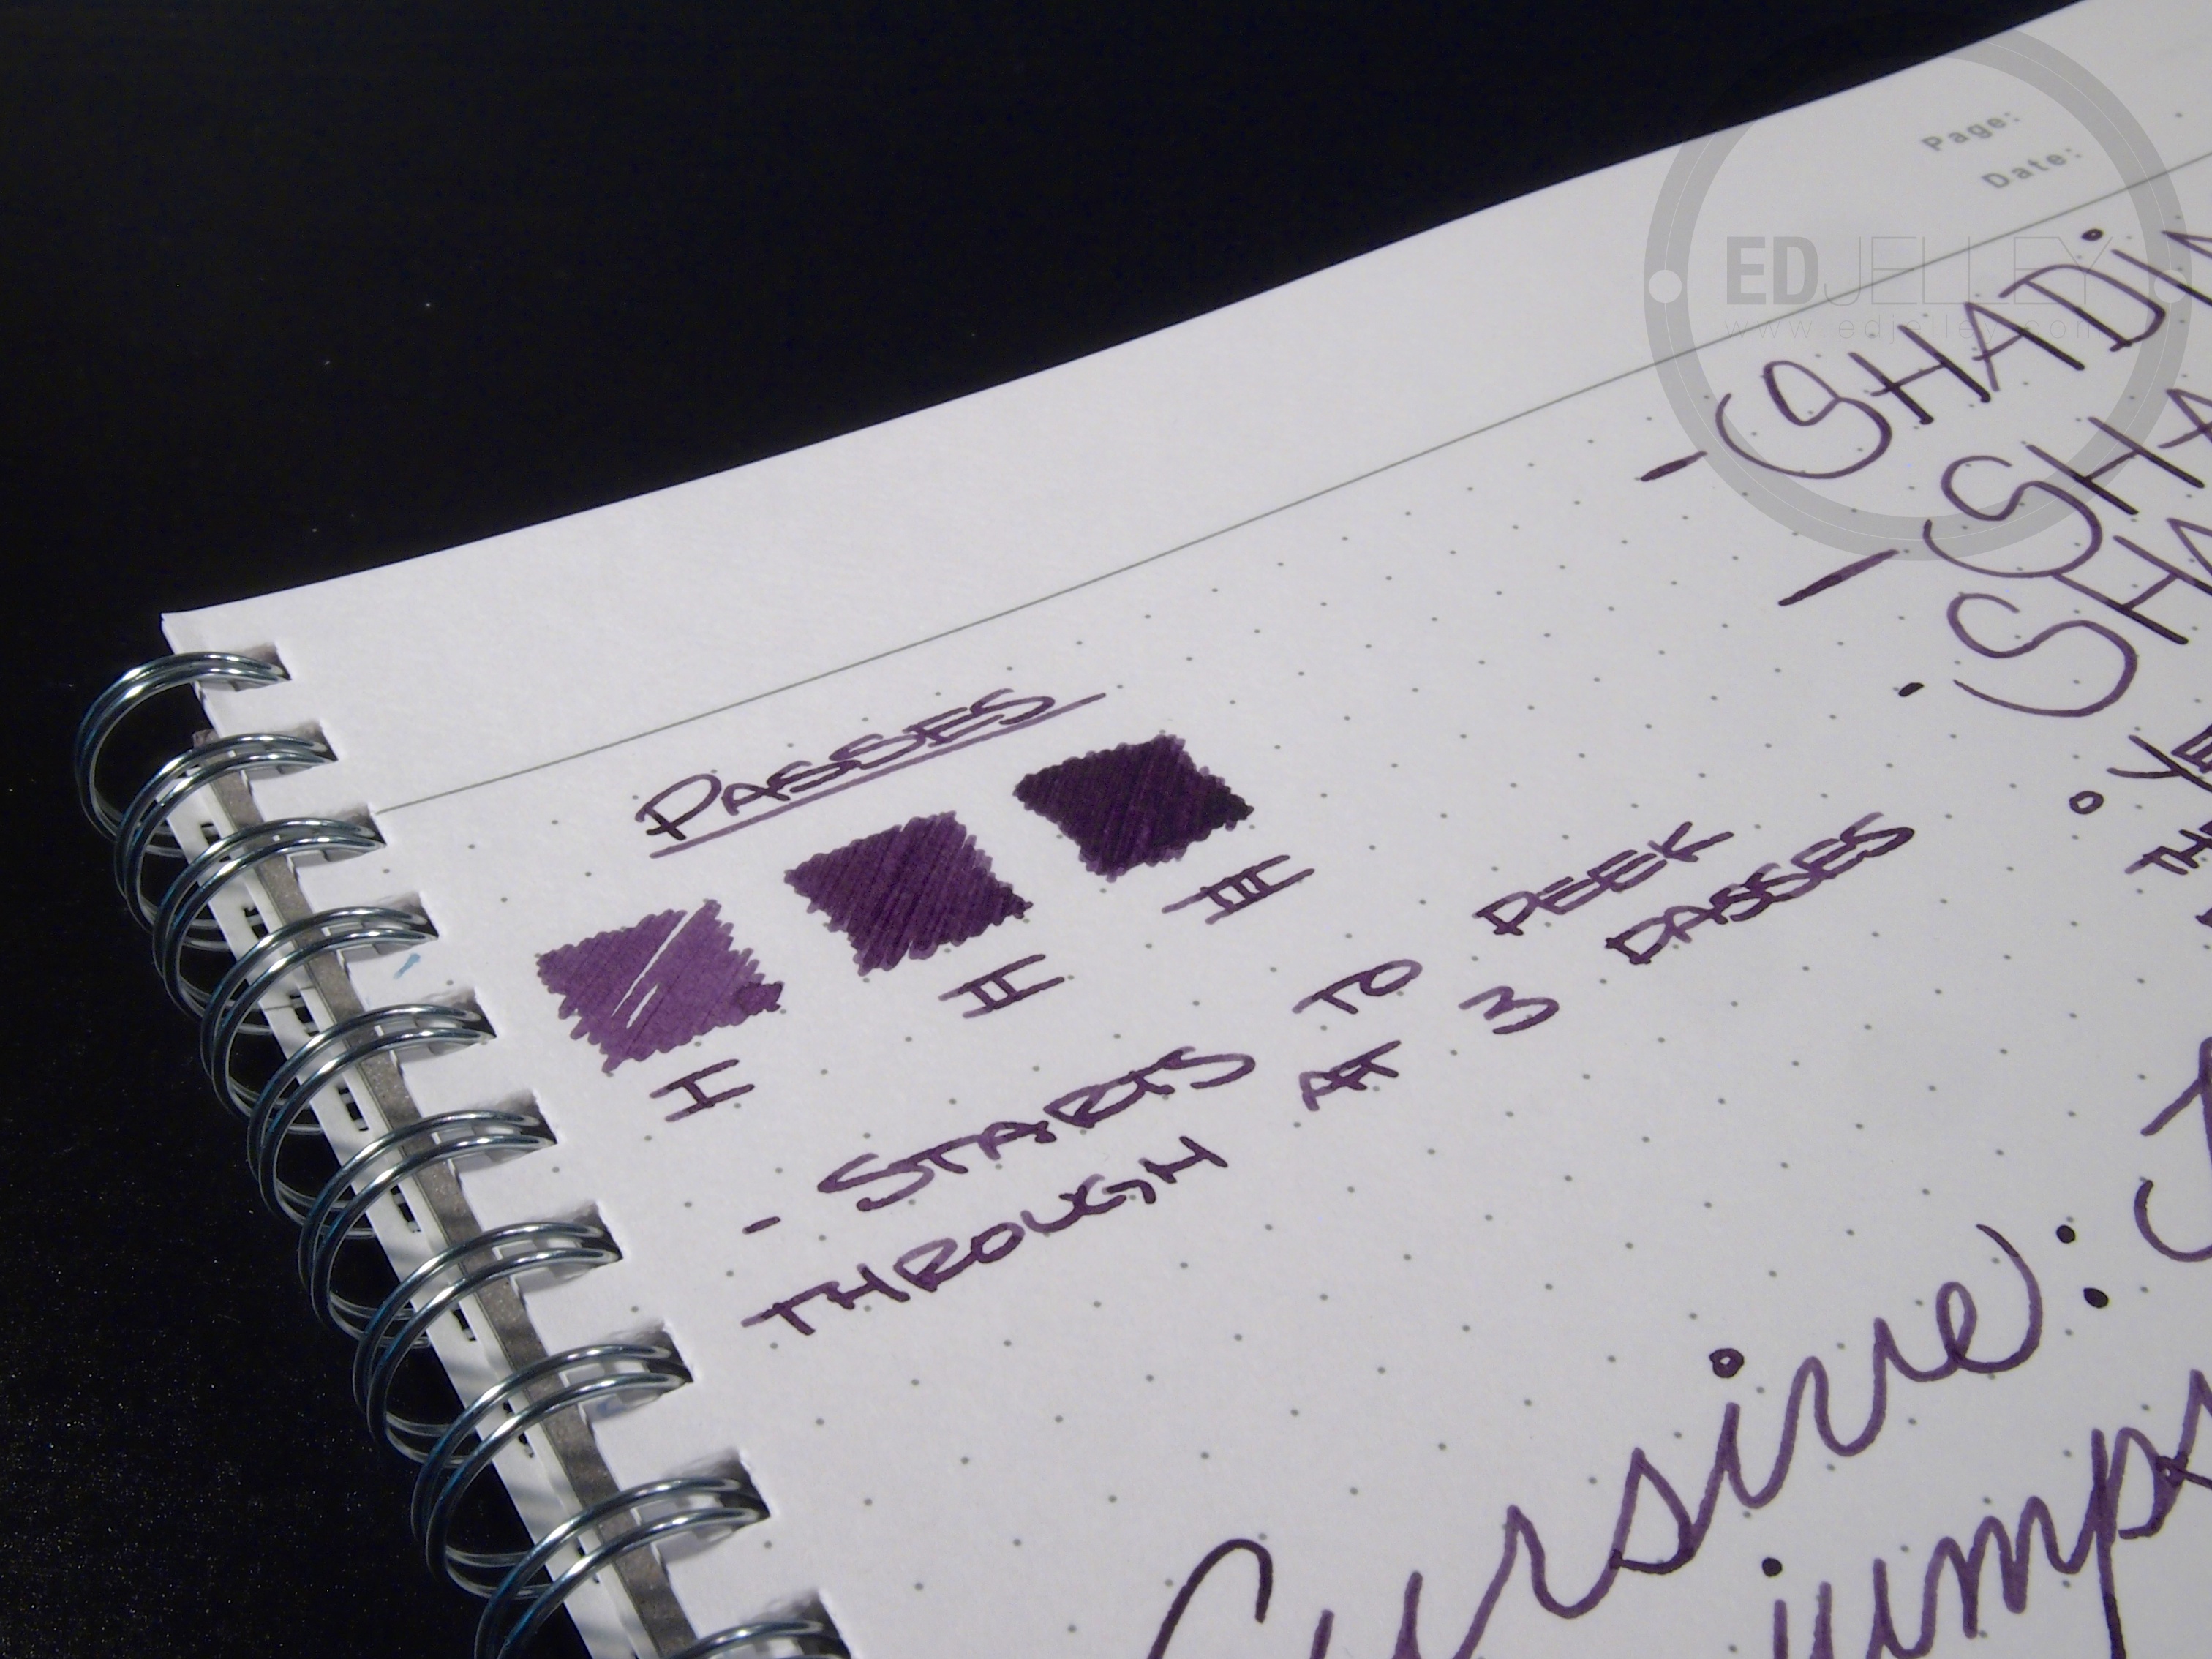 Page:
Date:
EDJELLEY
www.edjelley.com
PASSES
I II III
- STARTS TO PEEK
THROUGH AT 3 PASSES
- SHADIN
- SHA
SHA
Cursive:
jumps